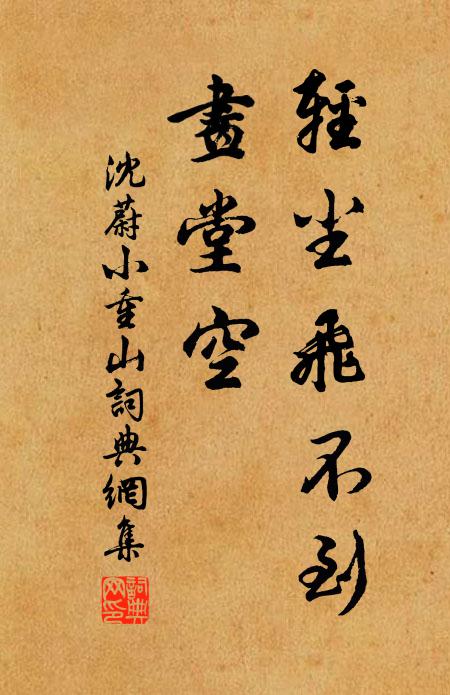 輕尘飛不到
畫堂空
沈蔚小重山詞典網集
詞典網印